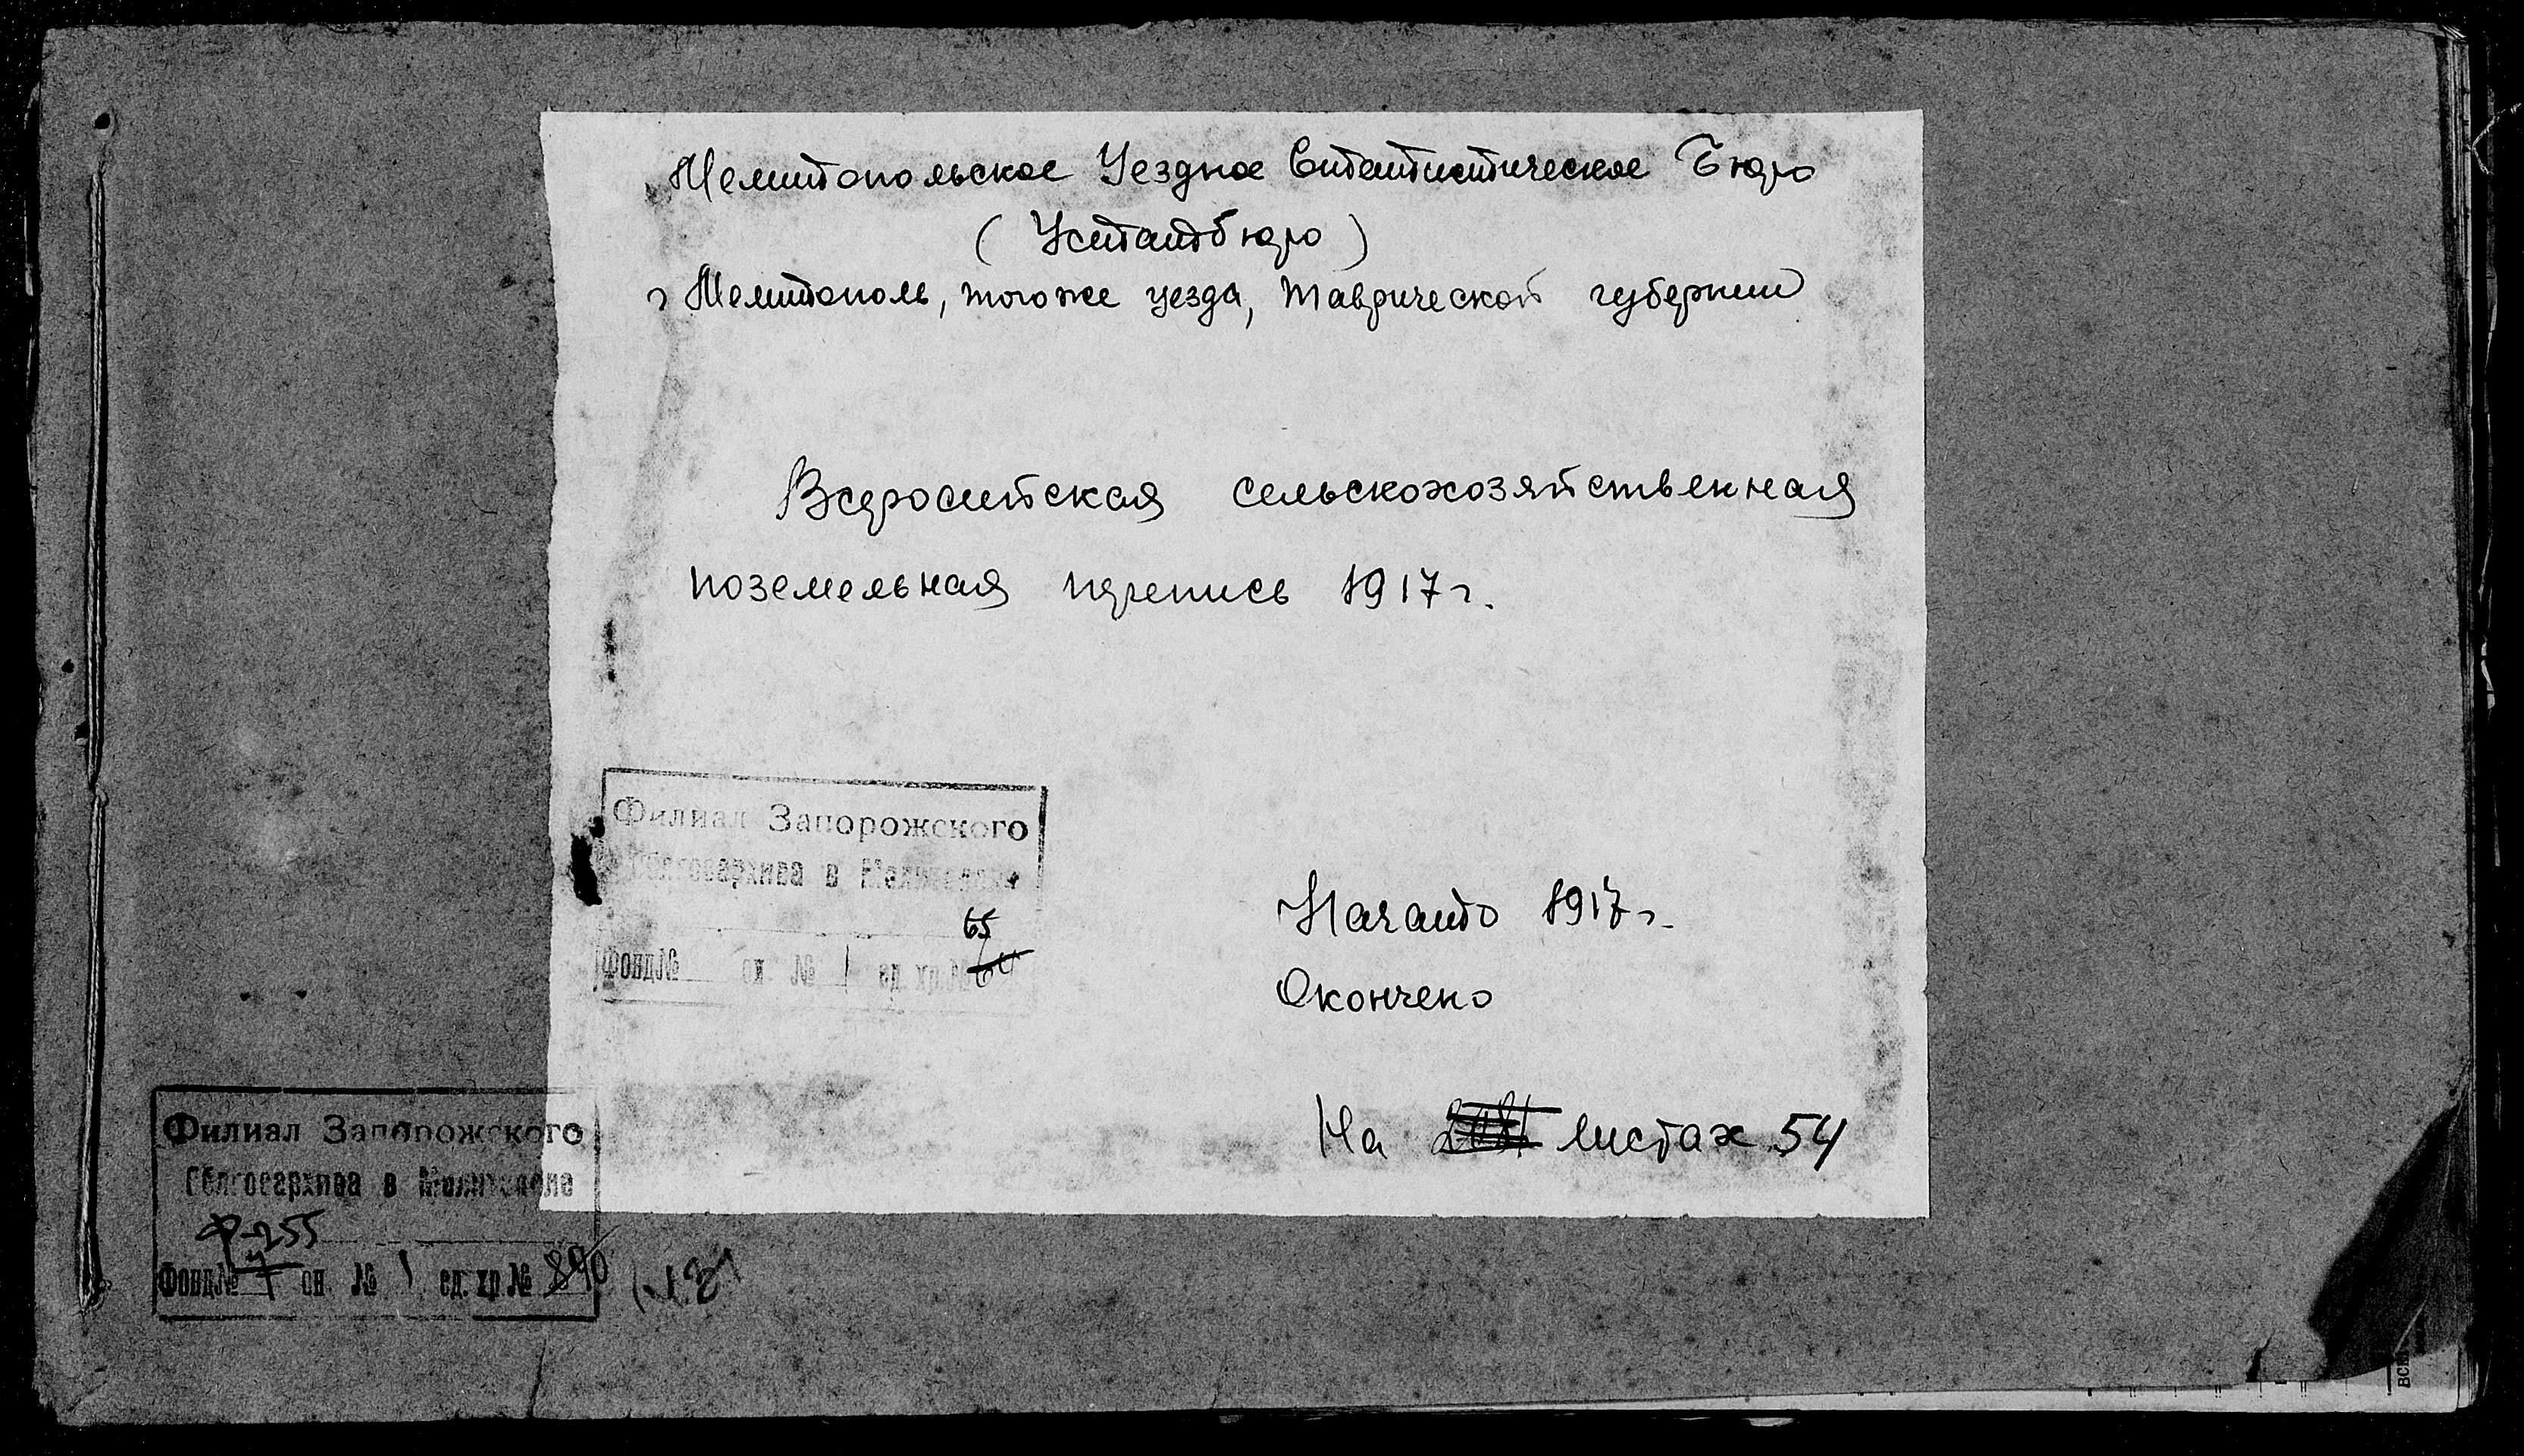 Мелитопольское Уездное Статистическое Бюро
(Устатбюро)
г Мелитополь, того же уезда, Таврической губернии
Всеросийская сельскохозяйственная
поземельная перепись 1917 г.
Филиал Запорожского
Облгосархива в Мелитополе
65
Фонд № оп. № 1 ед. хр. № 64
Начато 1917 г.
Окончено
На листах 54
Филиал Запорожского
Облгосархива в Мелитополе
Ф-255
Фонд № 7 оп. № 1 ед. хр. № 890